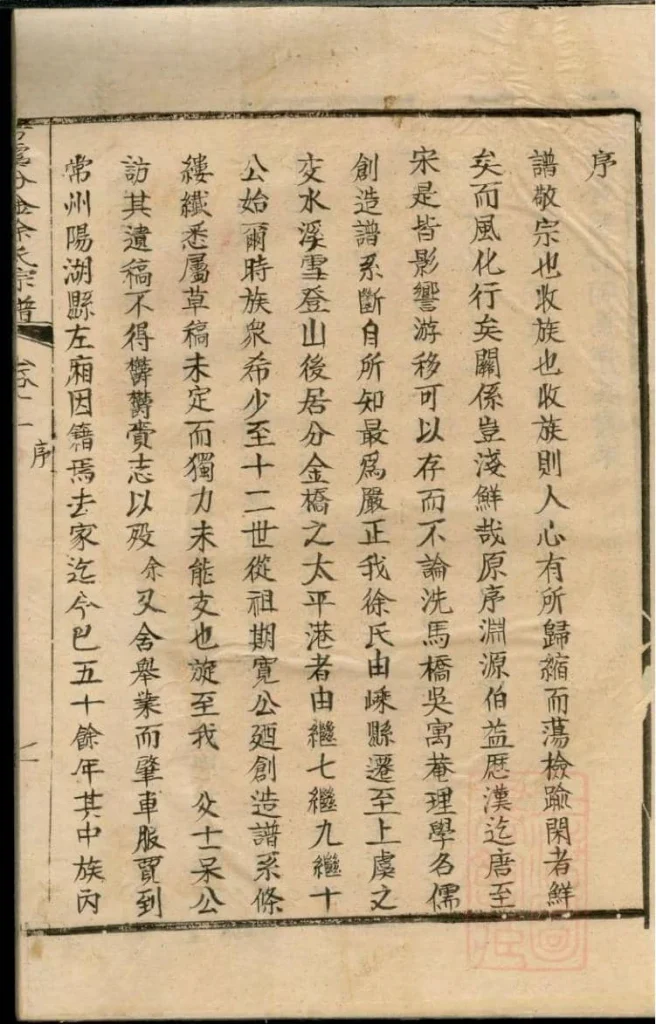 序
譜敬宗也收族也收族則人心有所歸縮而蕩檢踰閑者鮮
矣而風化行矣關係豈淺鮮哉原序淵源伯益歷漢迄唐至
宋是皆影響游移可以存而不論洗馬橋吳寓菴理學名儒
創造譜系斷自所知最爲嚴正我徐氏由嵊縣遷至上虞之
交水溪雪登山後居分金橋之太平港者由繼七繼九繼十
公始爾時族衆希少至十二世從祖期寬公廼創造譜系條
縷纖悉屬草稿未定而獨力未能支也旋至我 父十一呆公
訪其遺稿不得欝欝賫志以殁余又舍舉業而肇車服賈到
常州陽湖縣左廂因籍焉去家迄今已五十餘年其中族內
分金徐氏宗譜 卷一 序 一